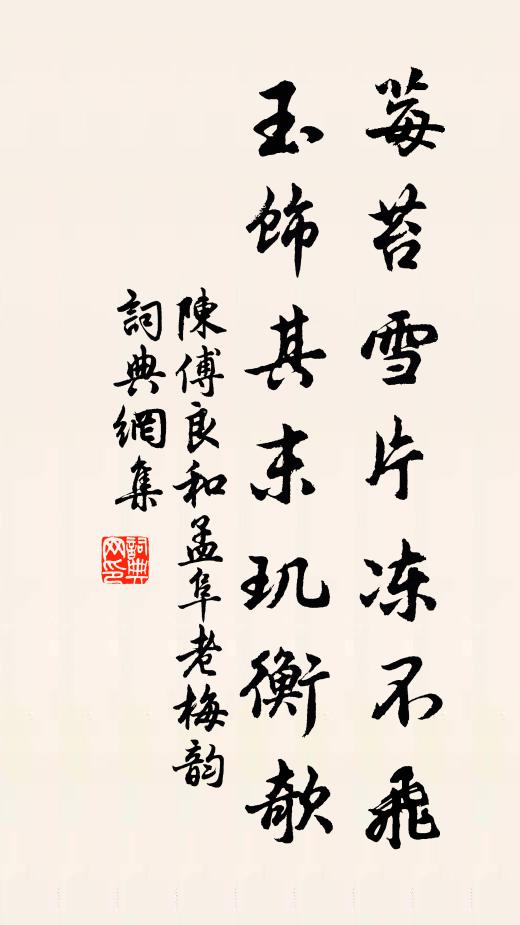 莓苔雪片冻不飛
玉飾其末玑衡欹
陳傅良和孟阜老梅韵
詞典網集
詞典网印